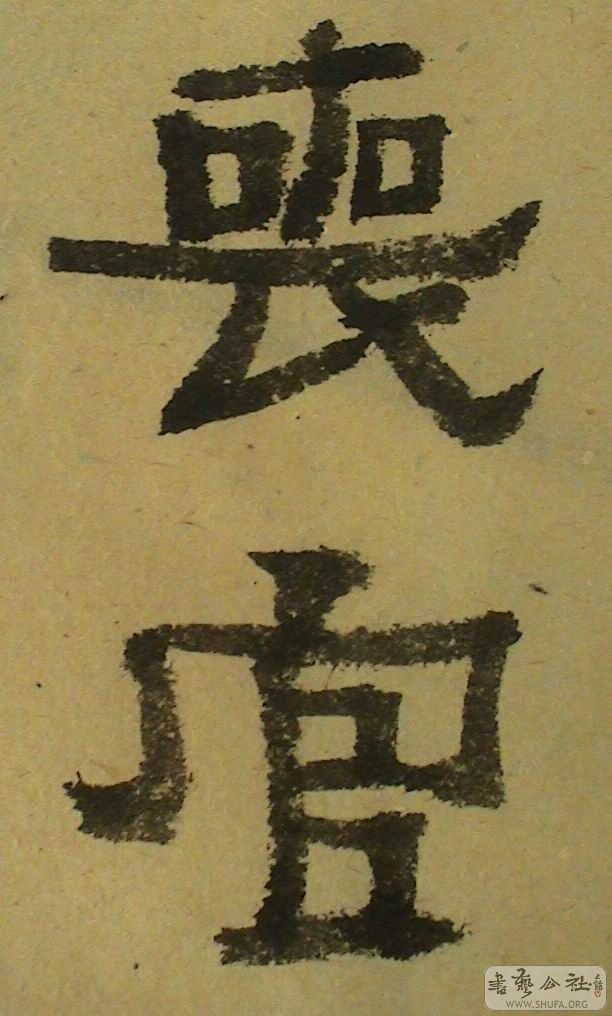 喪官
書藝公社
WWW.SHUFA.ORG